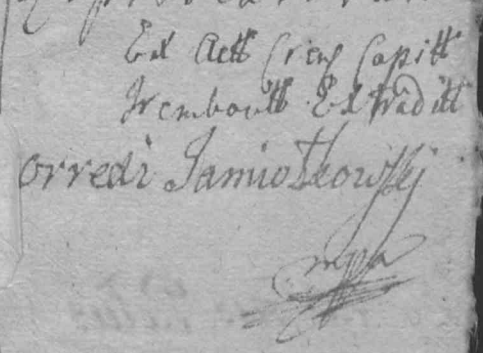 Ex Actt Cñs Capitt
Trembovtt Extraditt
orredi Jamiołkowskj
mpa